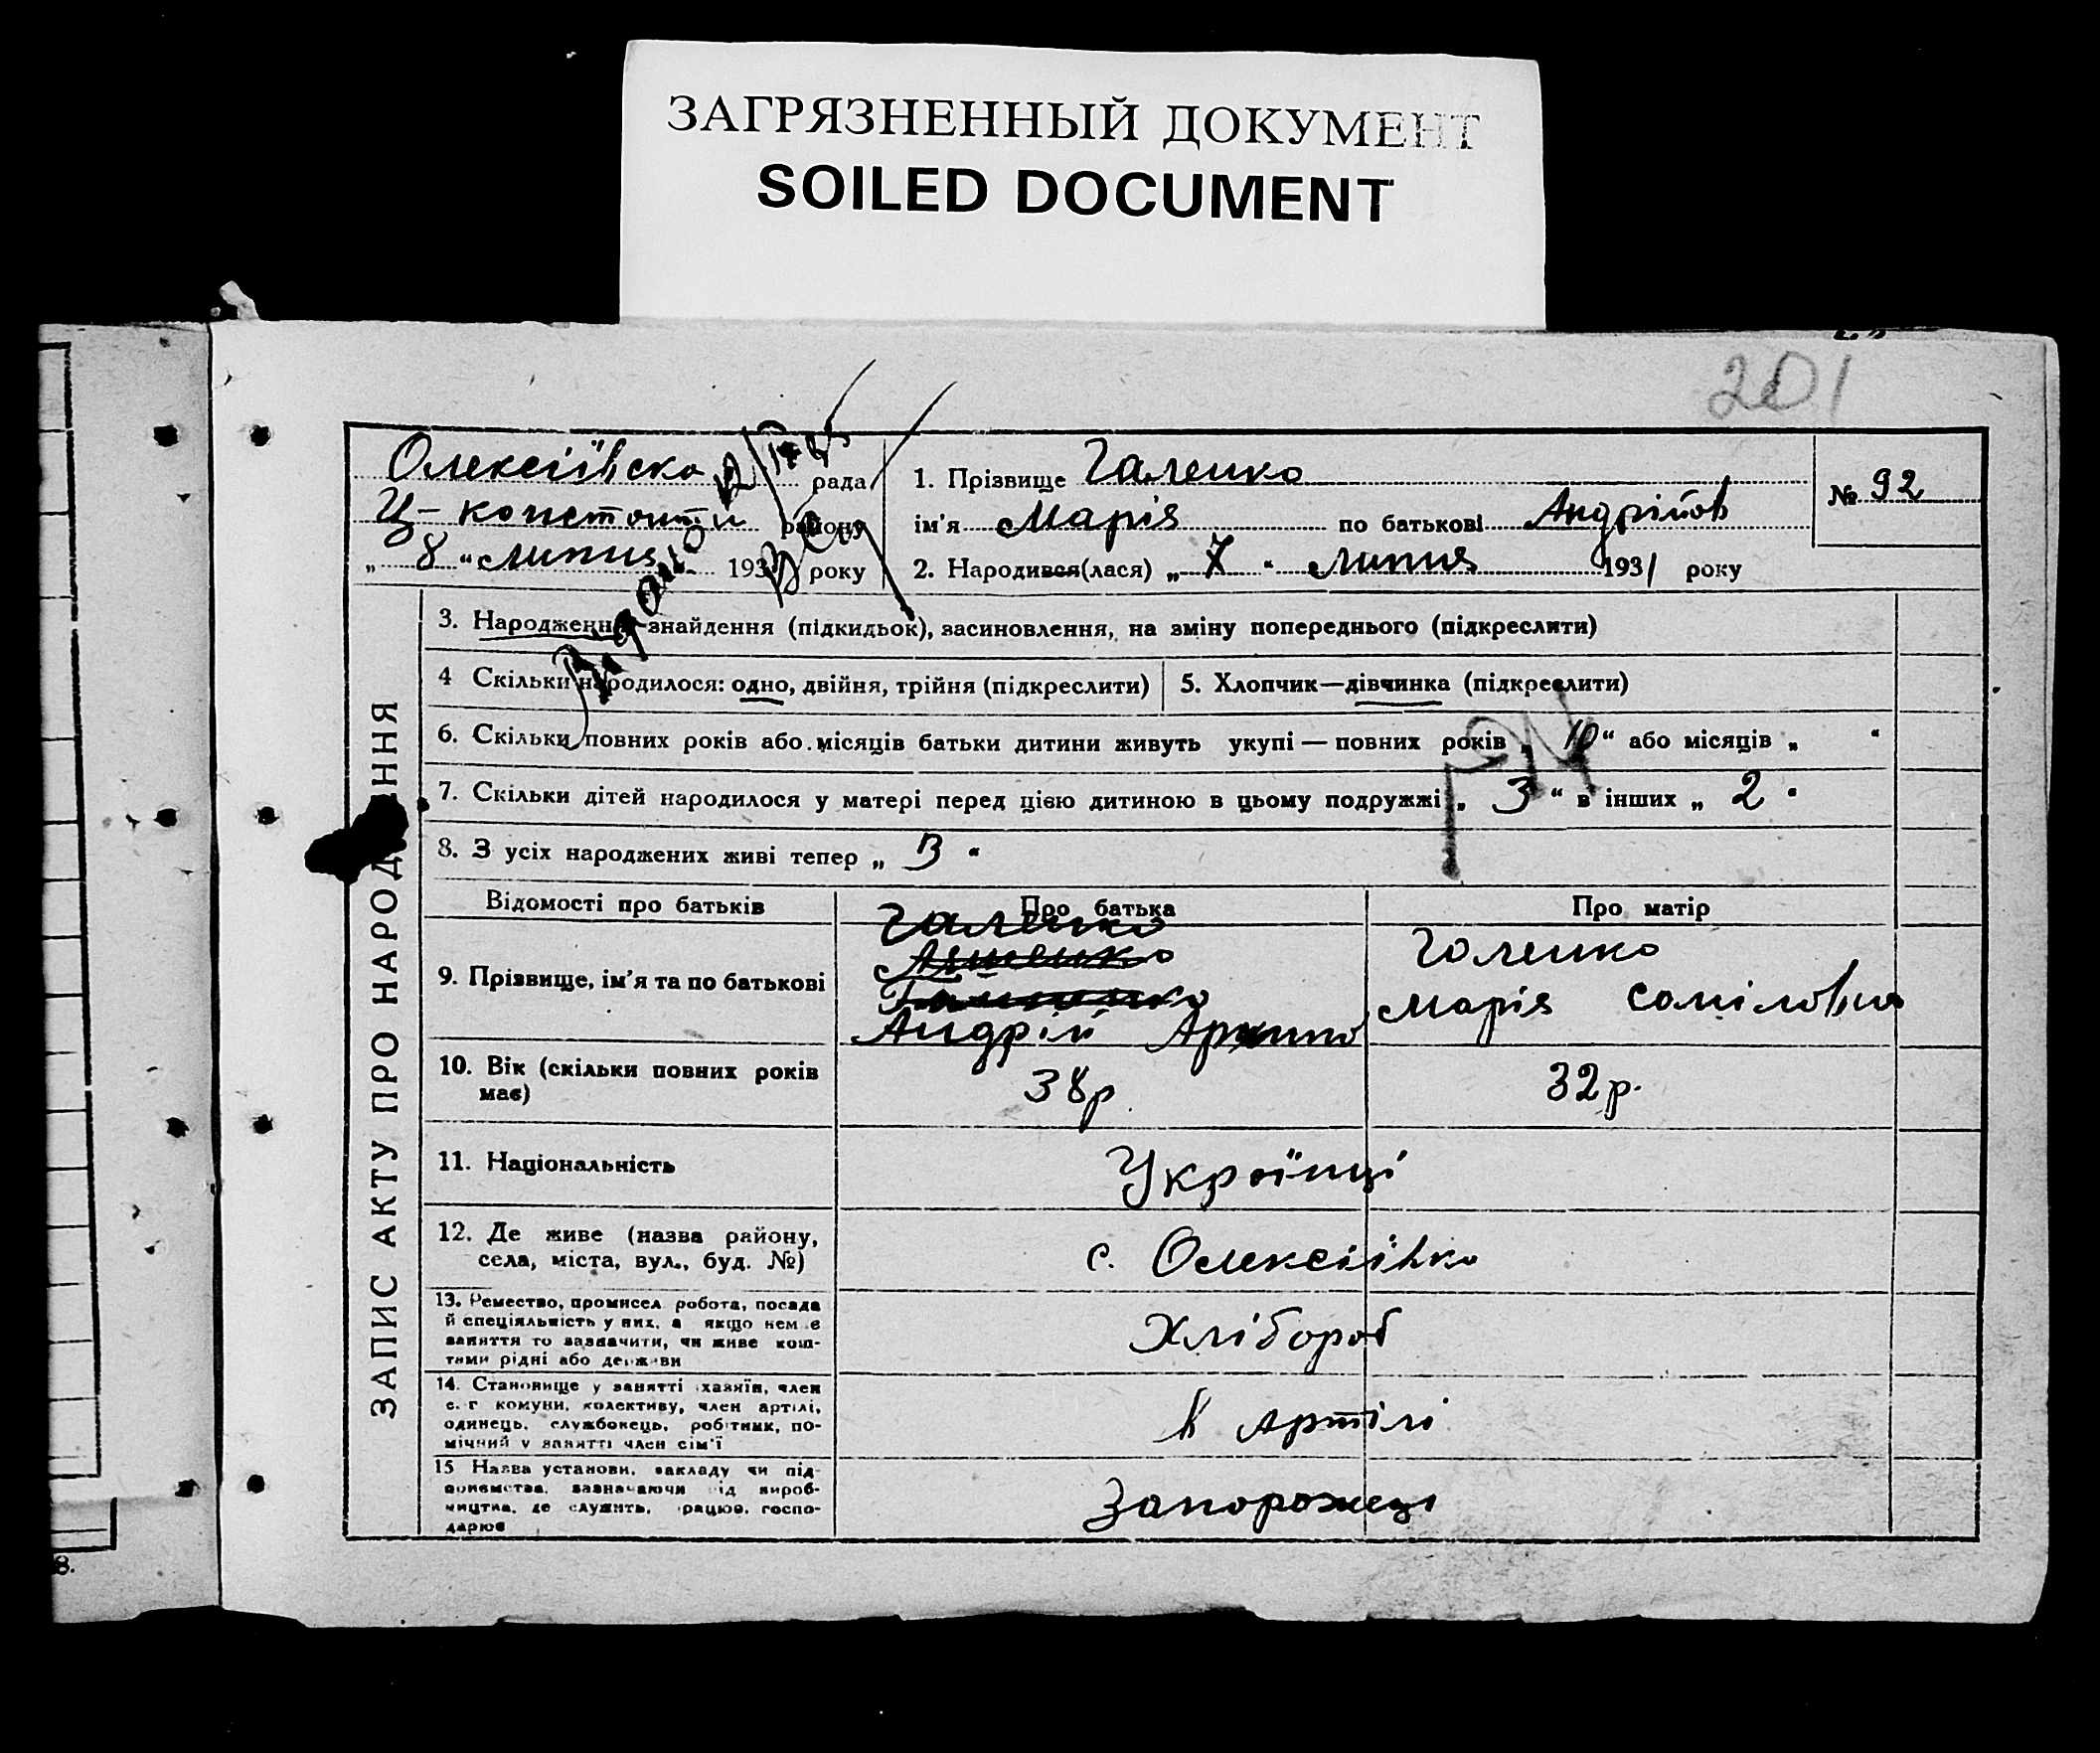 ЗАГРЯЗНЕННЫЙ ДОКУМЕНТ
SOILED DOCUMENT
201
Олексіївска рада
Ц- констонти району
„ 8 “ липня 193 року
1. Прізвище Галенко
№ 92
ім'я Марія по батькові Андріїов
2. Народився(лася) „ 7 “ липня 1931 року
ЗАПИС АКТУ ПРО НАРОД ННЯ
3. Народження знайдення (підкидьок), засиновлення, на зміну попереднього (підкреслити)
4 Скільки народилося: одно, двійня, трійня (підкреслити)
5. Хлопчик—дівчинка (підкреслити)
6. Скільки повних років або місяців батьки дитини живуть укупі — повних років „ 10 “ або місяців „ “
7. Скільки дітей народилося у матері перед цією дитиною в цьому подружжі „ 3 “ в інших „ 2 “
8. З усіх народжених живі тепер „ 3 “
Відомості про батьків
Про батька
Про матір
9. Прізвище, ім'я та по батькові
Галенко
Андрій
Галенко
Марія Соміловна
10. Вік (скільки повних років
має)
38р
32р.
11. Національність
Українці
12. Де живе (назва району,
села, міста, вул., буд. №)
с. Олексіівка
13. Ремество, промисел робота, посада
й спеціяльність у них, а якщо нем є
заняття то зазначити, чи живе кош-
тами рідні або держави
Хлібороб
14. Становище у занятті хазяїн, член
с. г комуни, колективу, член артілі,
одинець, службовець, робітник, по-
мічний у занятті член сім'ї
в Артілі
15 Назва установи, закладу чи під-
приємства, зазначаючи від вироб-
ництва, де служить, працює, госпо-
дарює
Запорожець
8.